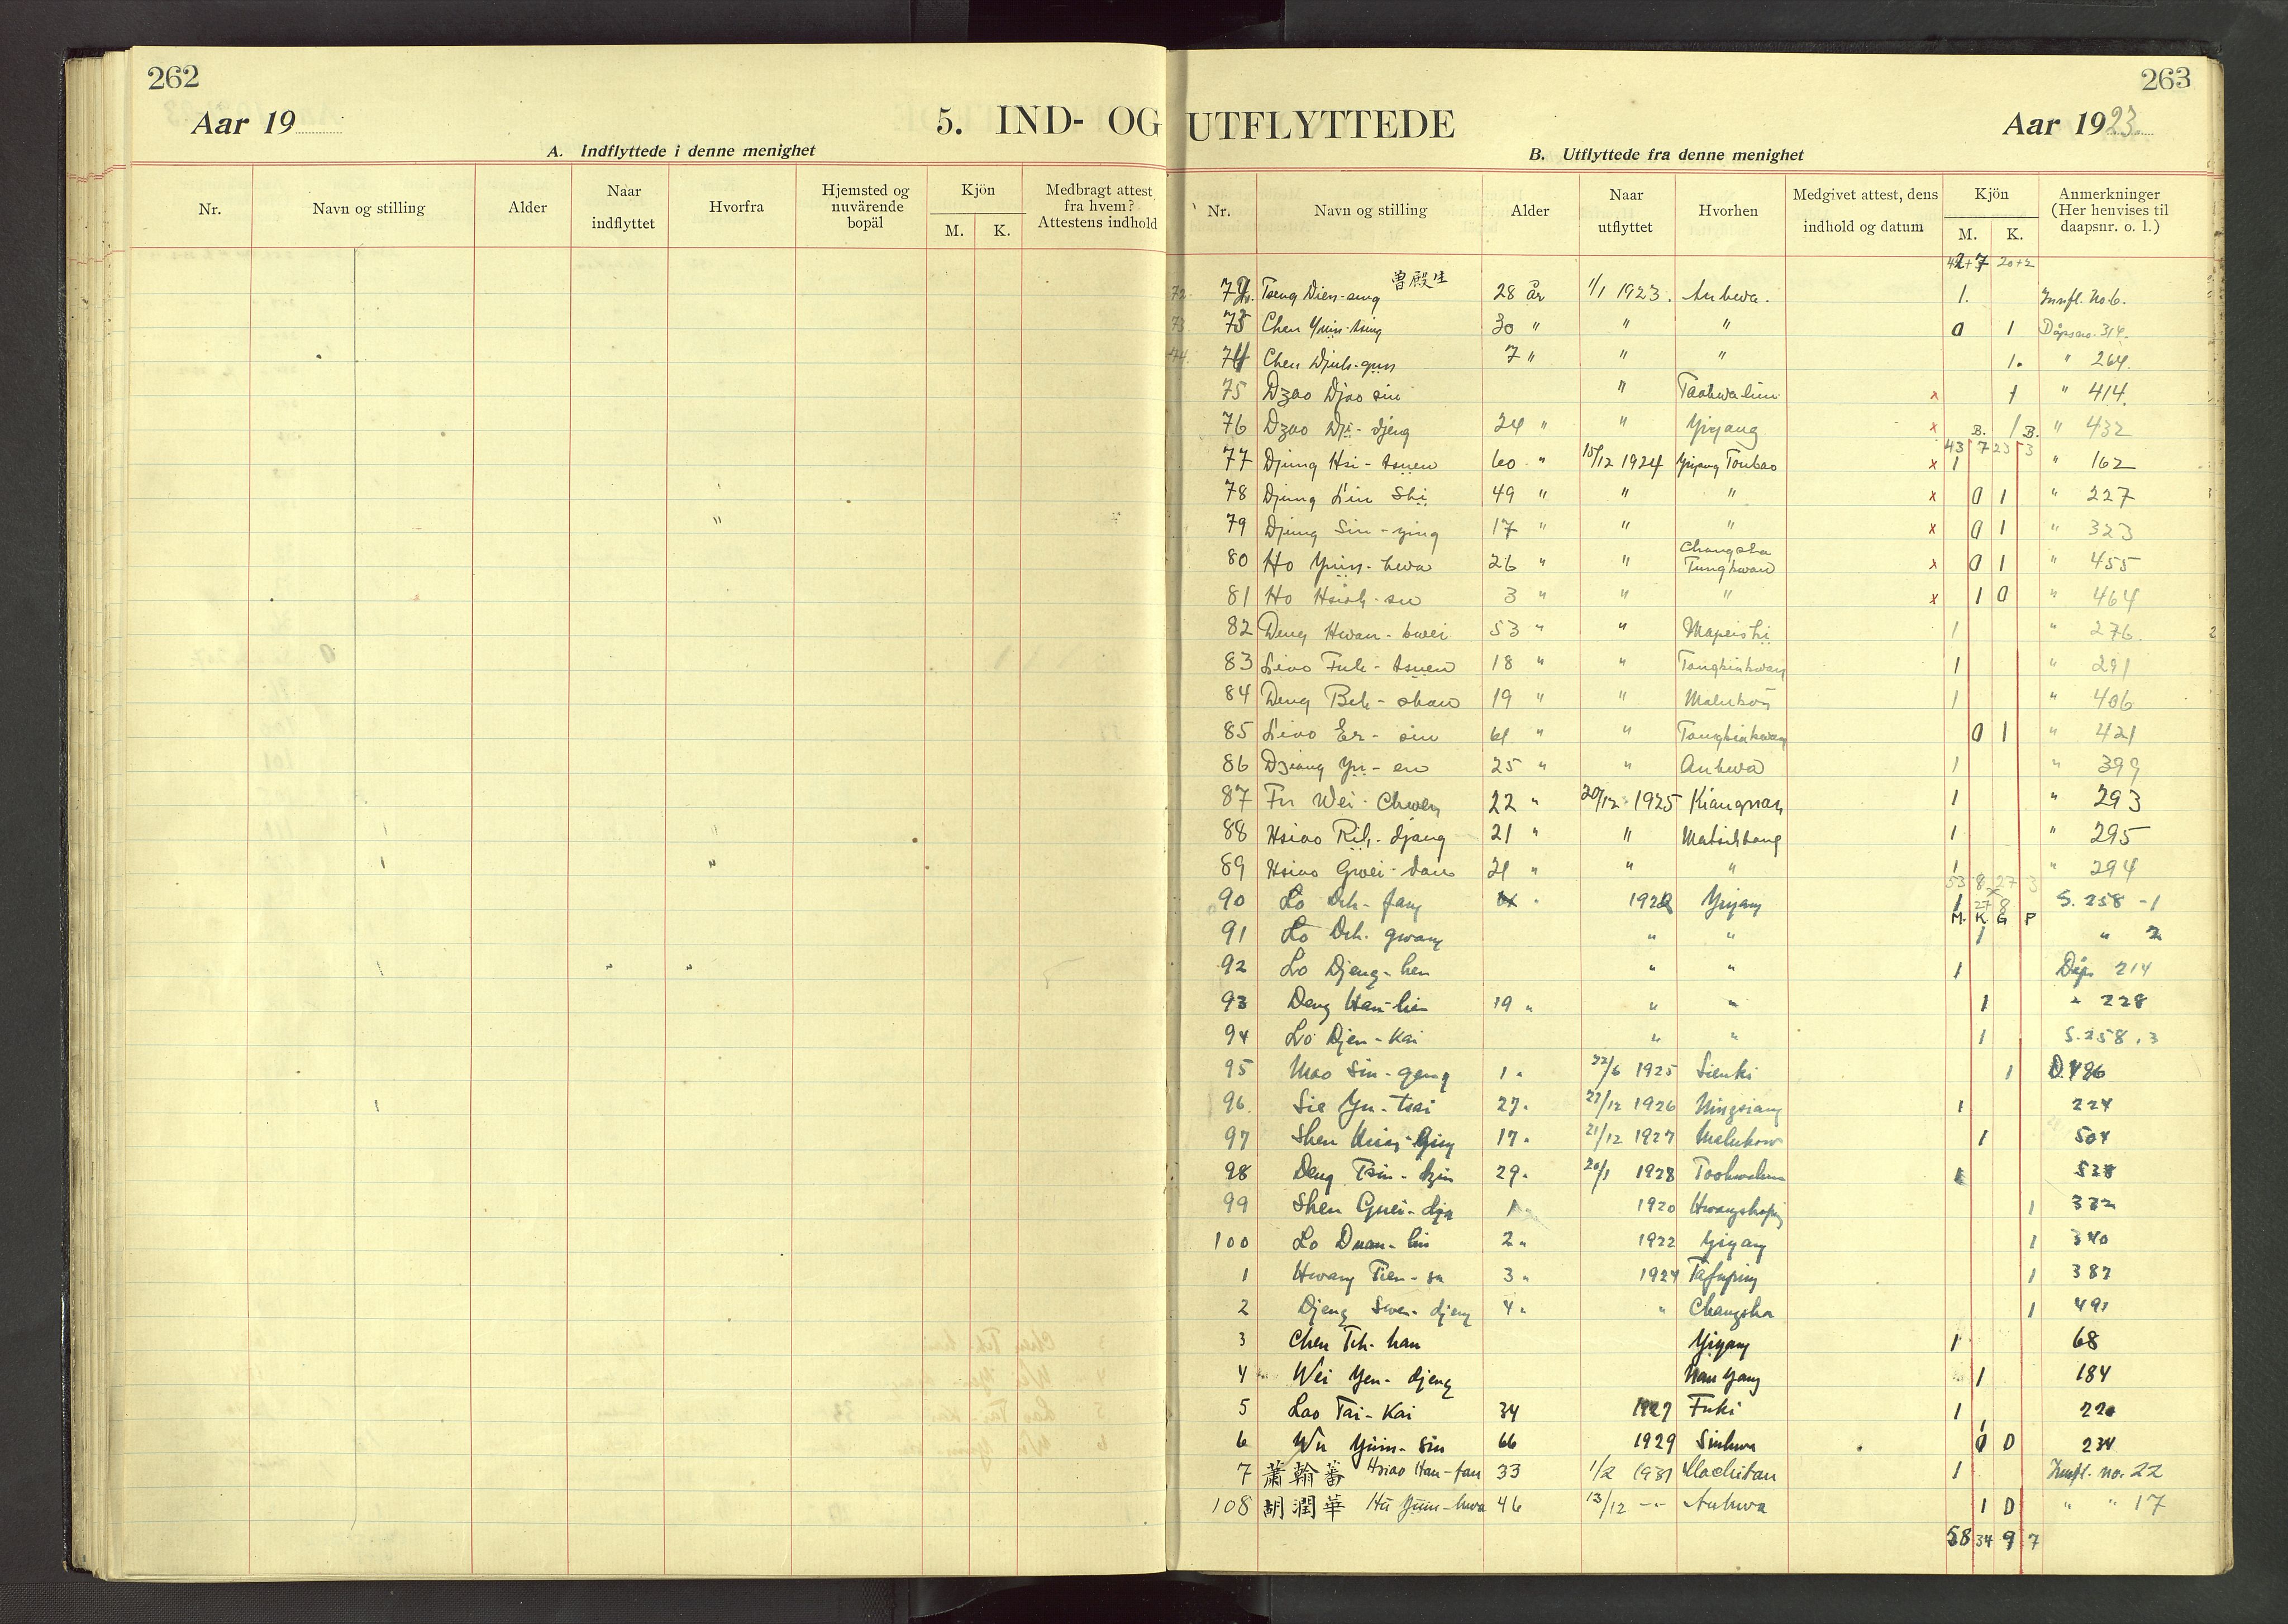 262
Aar 19
5. IND- OG
A. Indflyttede i denne menighet
Nr. Navn og stilling Alder Naar indflyttet Hvorfra Hjemsted og nuværende bopäl Kjön M. K. Medbragt attest fra hvem? Attestens indhold
263
UTFLYTTEDE
Aar 1923.
B. Utflyttede fra denne menighet
Nr. Navn og stilling Alder Naar utflyttet Hvorhen Medgivet attest, dens indhold og datum Kjön M. K. Anmerkninger (Her henvises til daapsnr. o. l.)
42+7 20+2
72 Tseng Dien-seng 曾殿生 28 år 1/1 1923. Anhwa. 1. Innfl. No 6.
73 Chen Yuin-tsing 30 " " " 0 1 Dåpsno. 314.
74 Chen Djuh-qun 7 " " " 1. " 264.
75 Dzao Djao sin " Taohwalun x 1 " 414.
76 Dzao Dji-djeng 24 " " Yiyang x 1 " 432
B. B.
43 7 23 3
77 Djung Hsi-tsuen 60 " 15/12 1924 Yiyang Toubao x 1 " 162
78 Djung Lin Shi 49 " " " x 0 1 " 227
79 Djung Sin-ying 17 " " " x 0 1 " 323
80 Ho Yuin-hwa 26 " " Changsha Tungkwan x 0 1 " 455
81 Ho Hsioh-su 3 " " " x 1 0 " 464
82 Deng Hwan-kwei 53 " " Mapeishi 1 " 276.
83 Liao Fuh-tsuen 18 " " Tangkiakwan 1 " 291
84 Deng Beh-shan 19 " " Malukou 1 " 406
85 Liao Er-sin 61 " " Tangkiakwan 0 1 " 421
86 Dziang Yu-en 25 " " Anhwa 1 " 399
87 Fu Wei-Chwen 22 " 20/12 1925 Kiangnan 1 " 293
88 Hsiao Rih-djang 21 " " Matsihtang 1 " 295
89 Hsiao Gwei-dan 21 " " " 1 " 294
53 8 27 3
90 Lo Deh-fang 1922 Yiyang 1 27 8 S. 258 -1
M. K. G P
91 Lo Deh-gwang " " 1 " 2
92 Lo Djeng-hen " " 1 Dåps 214
93 Deng Han-lin 19 " " " 1 " 228
94 Lo Djen-Kai " " 1 S. 258. 3
95 Mao Sin-geng 1 " 22/6 1925 Sienki 1 D. 496
96 Sie Yu-tsai 27 " 22/12 1926 Ningsiang 1 224
97 Shen Ging 17 " 21/12 1927 Malukow 1 504
98 Deng Tsin-dzin 29 " 20/1 1928 Taohwalun 1 528
99 Shen Guei-dja 1 1920 Hwangshaping 1 332
100 Lo Duan-lin 2 " 1922 Yiyang 1 340
1 Hwang Tien-sa 3 " 1924 Tafuping 1 387
2 Djeng Swen-djeng 4 " " Changsha 1 491
3 Chen Teh-han Yiyang 1 68
4 Wei Yen-djeng Nan Yang 1 184
5 Lao Tai-Kai 34 1927 Fuki 1 220
6 Wu Yuin-Sin 66 1929 Sinhwa 1 0 0 234
7 蕭翰蕃 Hsiao Han-fan 33 1/2 1931 Machitan 1 Innfl. no. 22
108 胡潤華 Hu Yuin-hwa 46 13/12 -- Anhwa 1 0 " " 17
58 34 9 7